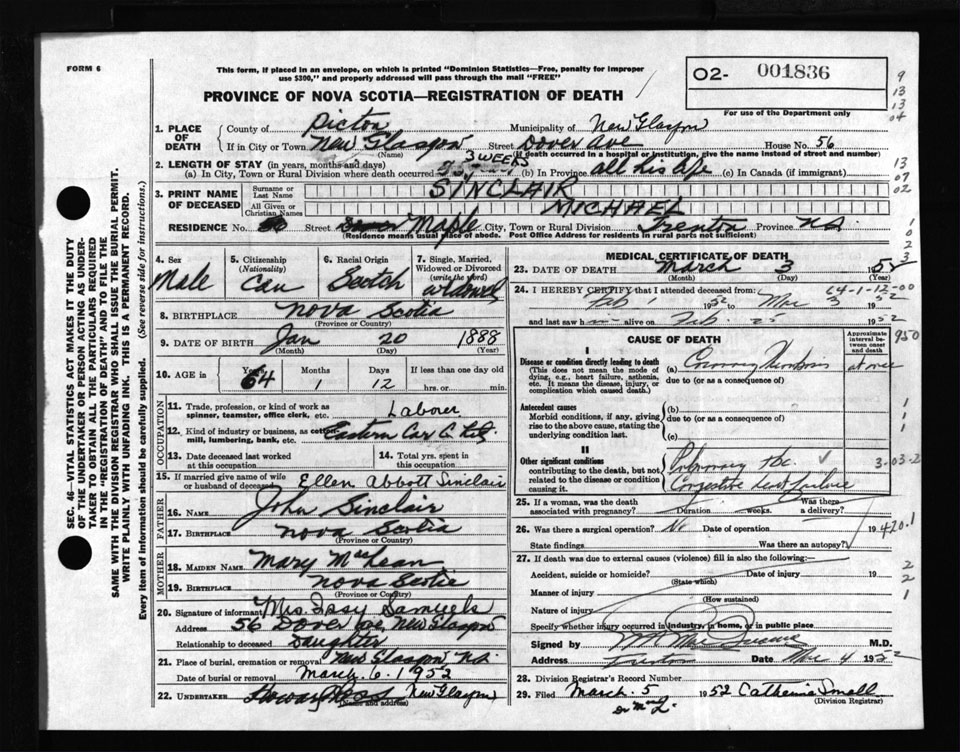 FORM 6
This form, if placed in an envelope, on which is printed "Dominion Statistics—Free, penalty for improper
use $300," and properly addressed will pass through the mail "FREE"
PROVINCE OF NOVA SCOTIA—REGISTRATION OF DEATH
02- 001836
For use of the Department only
9
13
13
04
1. PLACE OF DEATH County of Pictou Municipality of New Glasgow
If in City or Town New Glasgow (Name) Street Dover Ave House No. 56
(If death occurred in a hospital or institution, give the name instead of street and number)
2. LENGTH OF STAY (in years, months and days) 3 WEEKS
(a) In City, Town or Rural Division where death occurred (b) In Province all his life (c) In Canada (if immigrant)
13
07
02
3. PRINT NAME OF DECEASED Surname or Last Name SINCLAIR
All Given or Christian Names MICHAEL
RESIDENCE No. Street Maple City, Town or Rural Division Trenton Province N.S.
(Residence means usual place of abode. Post Office Address for residents in rural parts not sufficient)
1
0
2
3
SEC. 46—VITAL STATISTICS ACT MAKES IT THE DUTY
OF THE UNDERTAKER OR PERSON ACTING AS UNDER-
TAKER TO OBTAIN ALL THE PARTICULARS REQUIRED
IN THE "REGISTRATION OF DEATH" AND TO FILE THE
SAME WITH THE DIVISION REGISTRAR WHO SHALL ISSUE THE BURIAL PERMIT.
WRITE PLAINLY WITH UNFADING INK. THIS IS A PERMANENT RECORD.
Every item of information should be carefully supplied. (See reverse side for instructions.)
4. Sex Male
5. Citizenship (Nationality) Can
6. Racial Origin Scotch
7. Single, Married, Widowed or Divorced (write the word) widowed
8. BIRTHPLACE Nova Scotia
(Province or Country)
9. DATE OF BIRTH Jan 20 1888
(Month) (Day) (Year)
10. AGE in Years 64 Months 1 Days 12 If less than one day old
hrs. or min.
OCCUPATION
11. Trade, profession, or kind of work as spinner, teamster, office clerk, etc. Laborer
12. Kind of industry or business, as cotton-mill, lumbering, bank, etc. Eastern Car Co. Ltd.
13. Date deceased last worked at this occupation
14. Total yrs. spent in this occupation
15. If married give name of wife or husband of deceased Ellen Abbott Sinclair
FATHER
16. NAME John Sinclair
17. BIRTHPLACE Nova Scotia
(Province or Country)
MOTHER
18. MAIDEN NAME Mary MacLean
19. BIRTHPLACE Nova Scotia
(Province or Country)
20. Signature of informant Mrs. Issy Samuels
Address 56 Dover Ave, New Glasgow
Relationship to deceased Daughter
21. Place of burial, cremation or removal New Glasgow N.S.
Date of burial or removal March. 6. 1952
22. UNDERTAKER New Glasgow
(Name and address)
MEDICAL CERTIFICATE OF DEATH
23. DATE OF DEATH March 3 1952
(Month) (Day) (Year)
64-1-12-00
24. I HEREBY CERTIFY that I attended deceased from:
Feb 1 1952 to Mar 3 1952
and last saw him alive on Feb. 25 1952
CAUSE OF DEATH
Approximate interval between onset and death
950
I
Disease or condition directly leading to death
(This does not mean the mode of dying, e.g., heart failure, asthenia, etc. It means the disease, injury, or complication which caused death.)
(a) Coronary Thrombosis at once
due to (or as a consequence of)
Antecedent causes
Morbid conditions, if any, giving rise to the above cause, stating the underlying condition last.
(b)
due to (or as a consequence of)
(c)
1
1
1
II
Other significant conditions
contributing to the death, but not related to the disease or condition causing it.
Pulmonary tbc. ✓
Congestive heart failure
3-03-2
25. If a woman, was the death associated with pregnancy? Duration weeks. Was there a delivery?
26. Was there a surgical operation? No Date of operation 19
420.1
State findings Was there an autopsy?
27. If death was due to external causes (violence) fill in also the following:—
Accident, suicide or homicide? Date of injury 19
(State which)
Manner of injury
(How sustained)
Nature of injury
2
2
1
Specify whether injury occurred in industry, in home, or in public place
Signed by M.D.
Address Trenton Date Mar 4 1952
28. Division Registrar's Record Number
29. Filed March. 5 1952 Catherine Small
(Division Registrar)